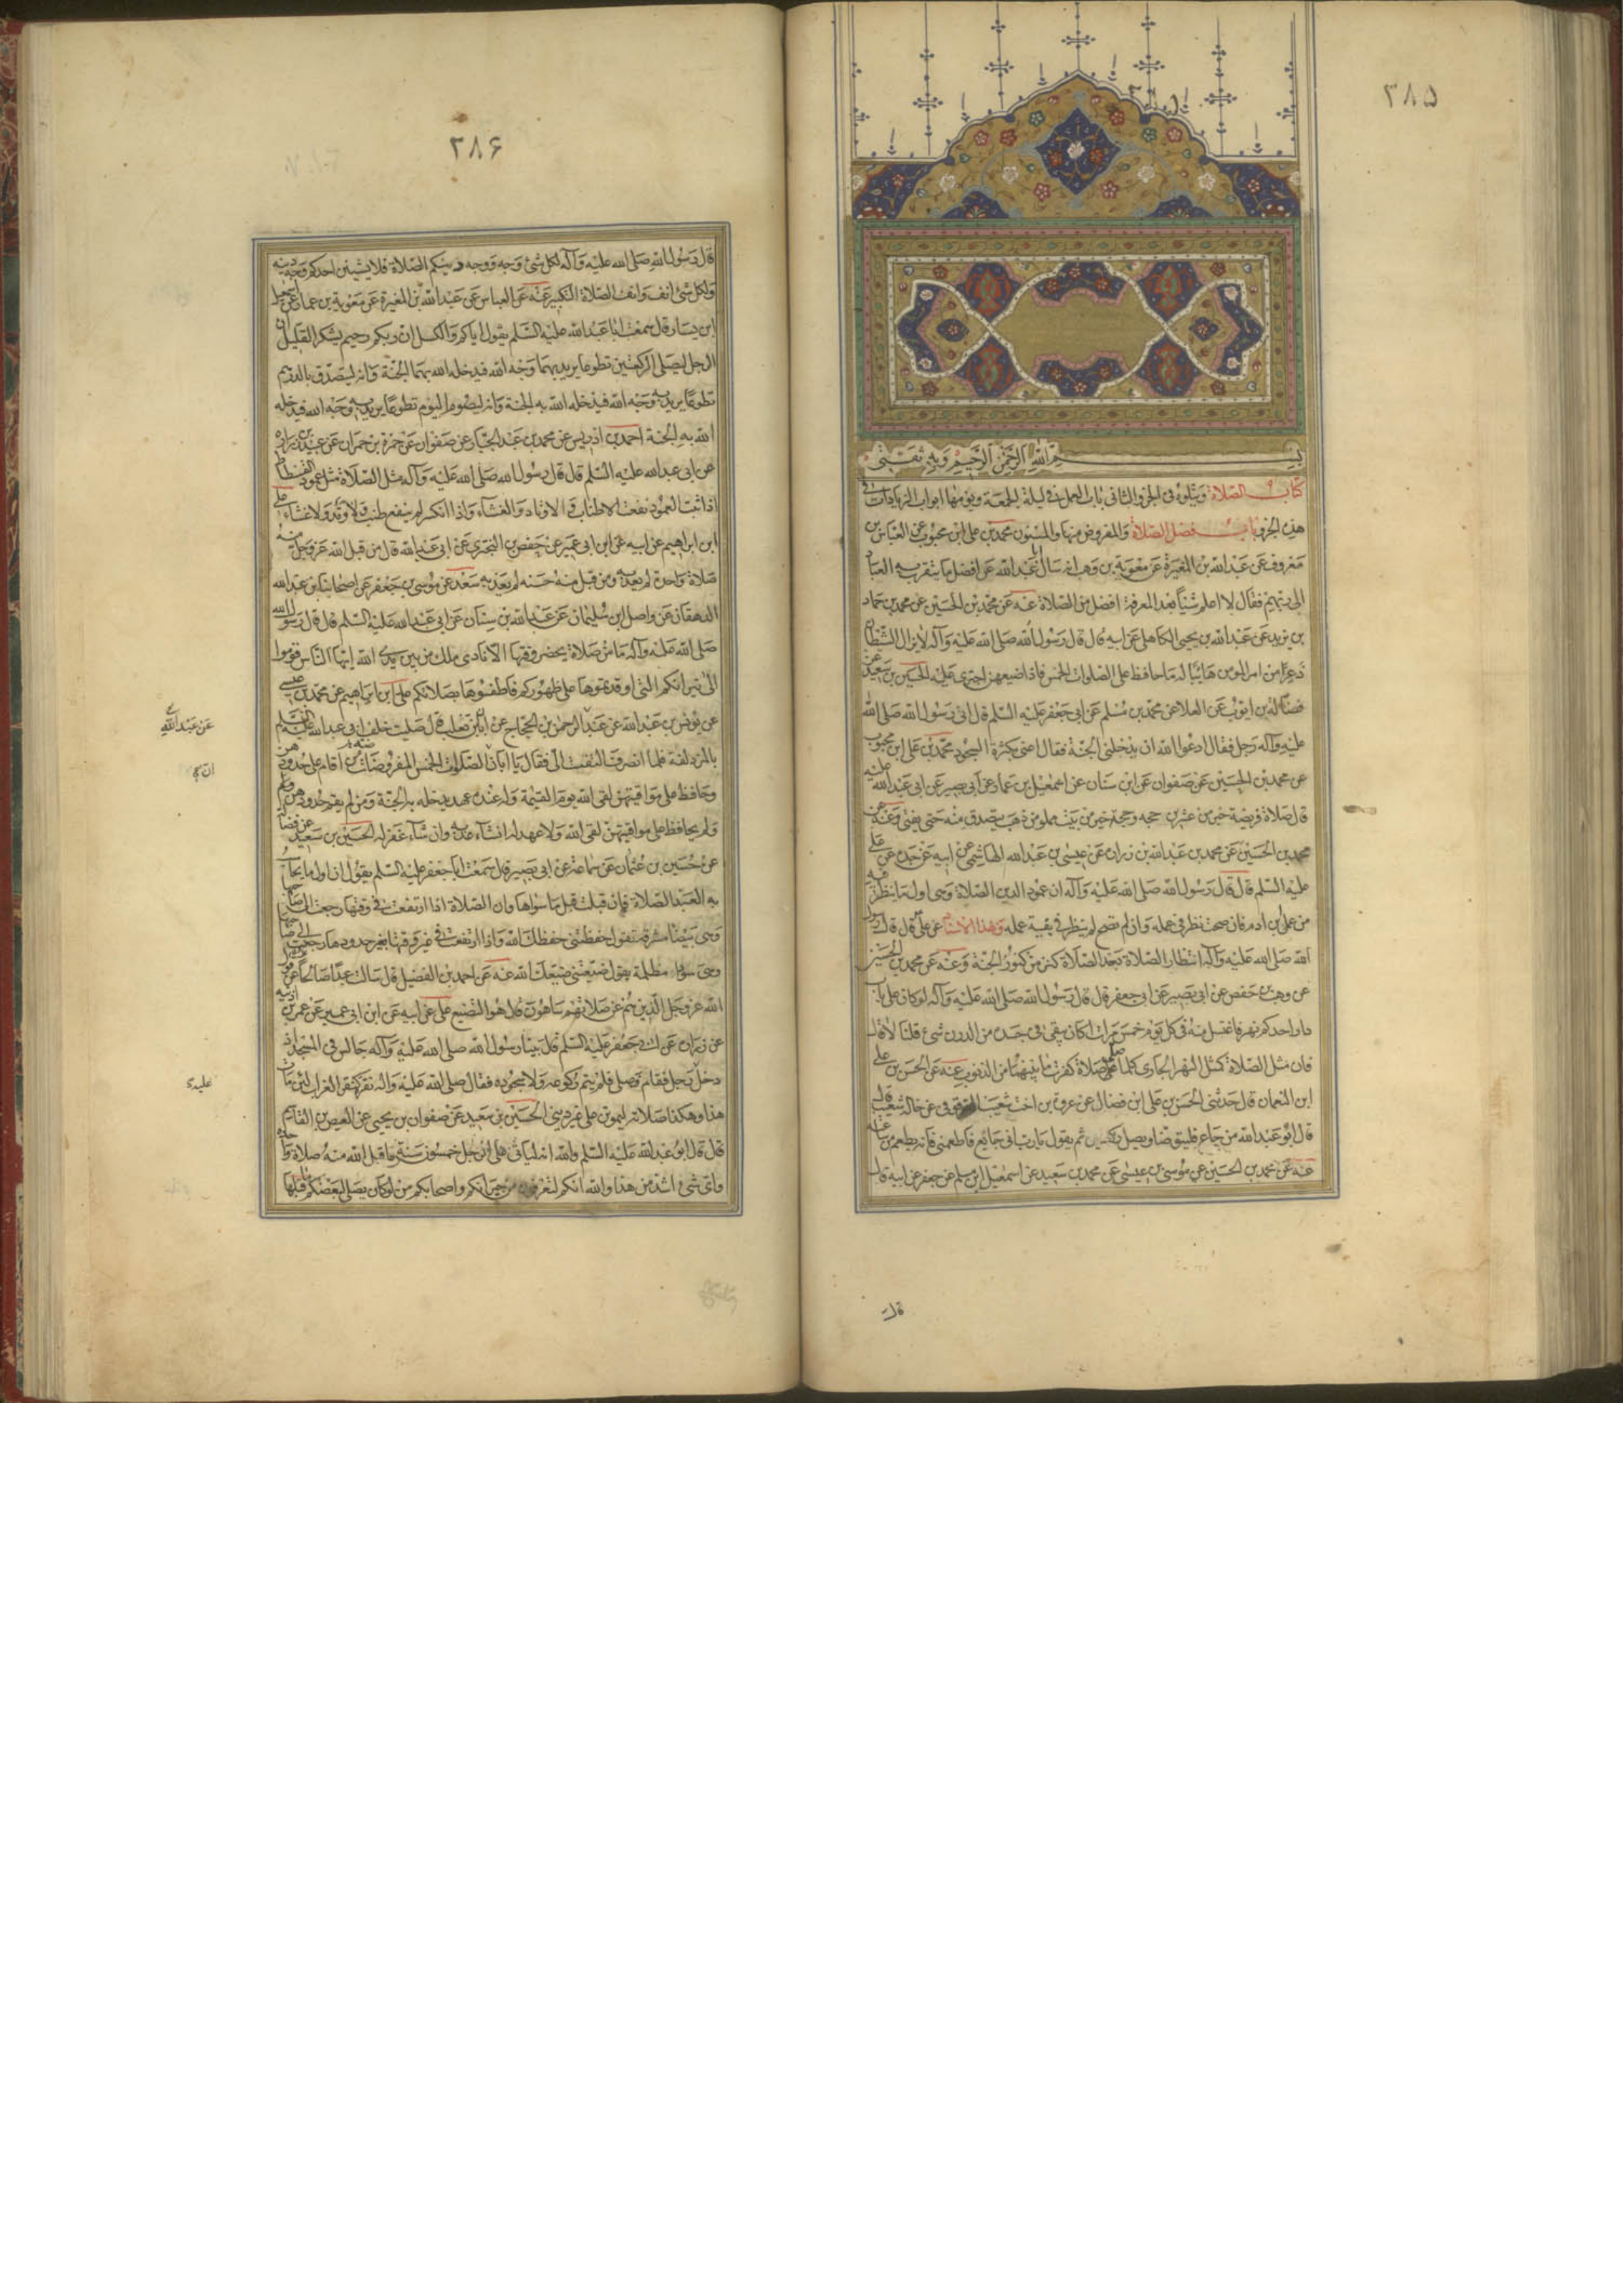 ٣٨٥
بسم الله الرحمن الرحيم وبه ثقتي
كتاب الصلاة ويتلوه في الجزو الثاني باب العمل في ليلة الجمعة ويومها ابواب الزيادات في
هذا الجزو باب فضل الصلاة والمفروض منها والمسنون محمد بن علي ابن محبوب عن العباس بن
معروف عن عبد الله بن المغيرة عن معوية بن وهب انه سال ابا عبد الله عن افضل ما يتقرب به العباد
الى ربهم فقال لا اعلم شيئا بعد المعرفة افضل من الصلاة عنه عن محمد بن الحسين عن محمد بن حماد
بن يزيد عن عبد الله بن يحيى الكاهلي عن ابيه قال قال رسول الله صلى الله عليه وآله لا يزال الشيطان
ذعرا من امر المومن هائبا له ما حافظ على الصلوات الخمس فاذا ضيعهن اجترى عليه الحسين بن سعيد عن
فضالة بن ايوب عن العلا عن محمد بن مسلم عن ابي جعفر عليه السلم قال اتى رسول الله صلى الله
عليه وآله رجل فقال ادعوا الله ان يدخلني الجنة فقال اعني بكثرة السجود محمد بن علي ابن محبوب
عن محمد بن الحسين عن صفوان عن ابن سنان عن اسمعيل بن عمار عن ابي بصير عن ابي عبد الله عليه
قال صلاة فريضة خير من عشرين حجه وحجة خير من بيت مملو من ذهب يتصدق منه حتى يفنى وعنه عن
محمد بن الحسين عن محمد بن عبد الله بن زرارة عن عيسى بن عبد الله الهاشمي عن ابيه عن جده عن علي
عليه السلم قال قال رسول الله صلى الله عليه وآله ان عمود الدين الصلاة وهي اول ما ينظر فيه
من عمل بن ادم فان صحت نظر في عمله وان لم تصح لم ينظر في بقية عمله وبهذا الاسناد عن علي قال قال رسول
الله صلى الله عليه وآله انتظار الصلاة بعد الصلاة كنز من كنوز الجنة وعنه عن محمد بن الحسين
عن وهب بن حفص عن ابي بصير عن ابي جعفر قال قال رسول الله صلى الله عليه وآله لو كان على باب
دار احدكم نهر فاغتسل منه في كل يوم خمس مرات اكان يبقى في جسده من الدرن شيء قلنا لا قال
فان مثل الصلاة كمثل النهر الجاري كلما صلى صلاة كفرت ما بينهما من الذنوب عنه عن الحسن بن علي
ابن النعمان قال حدثني الحسن بن علي ابن فضال عن عروة بن اخت شعيب العقرقوفي عن خاله شعيب قال
قال ابو عبد الله من جاع فليتوضا ويصل ركعتين ثم يقول يا رب اني جائع فاطعمني فانه يطعم من ساعته
عنه عن محمد بن الحسين عن موسى بن عيسى عن محمد بن سعيد عن اسمعيل ابن مسلم عن جعفر عن ابيه قال
قال
٣٨۶
قال رسول الله صلى الله عليه وآله لكل شيء وجه ووجه دينكم الصلاة فلا يشينن احدكم وجه دينه
ولكل شيء انف وانف الصلاة التكبير عنه عن العباس عن عبد الله بن المغيرة عن معوية بن عمار عن اسمعيل
ابن يسار قال سمعت ابا عبد الله عليه السلم يقول اياكم والكسل ان ربكم رحيم يشكر القليل ان
الرجل ليصلي الركعتين تطوعا يريد بهما وجه الله فيدخله الله بهما الجنة وانه ليتصدق بالدرهم
تطوعا يريد به وجه الله فيدخله الله به الجنة وانه ليصوم اليوم تطوعا يريد به وجه الله فيدخله
الله به الجنة احمد بن ادريس عن محمد بن عبد الجبار عن صفوان عن حمزة بن حمران عن عبيد بن زرارة
عن ابي عبد الله عليه السلم قال قال رسول الله صلى الله عليه وآله مثل الصلاة مثل عمود الفسطاط
اذا ثبت العمود نفعت الاطناب والاوتاد والغشاء واذا انكسر لم ينفع طنب ولا وتد ولا غشاء علي
ابن ابراهيم عن ابيه عن ابن ابي عمير عن حفص بن البختري عن ابي عبد الله قال من قبل الله عز وجل منه
صلاة واحدة لم يعذبه ومن قبل منه حسنه لم يعذبه سعد عن موسى بن جعفر عن اصحابنا عن عبد الله
الدهقان عن واصل ابن سليمان عن عبد الله بن سنان عن ابي عبد الله عليه السلم قال قال رسول الله
صلى الله عليه وآله ما من صلاة يحضر وقتها الا نادى ملك من بين يدي الله ايها الناس قوموا
الى نيرانكم التي اوقدتموها على ظهوركم فاطفئوها بصلاتكم علي ابن ابراهيم عن محمد بن عيسى
عن يونس بن عبد الله عن عبد الرحمن بن الحجاج عن ابان بن تغلب قال صليت خلف ابي عبد الله عليه السلم
بالمزدلفة فلما انصرف التفت الي فقال يا ابان الصلوات الخمس المفروضات من اقام حدودهن
وحافظ على مواقيتهن لقى الله يوم القيمة وله عنده عهد يدخله به الجنة ومن لم يقم حدودهن
ولم يحافظ على مواقيتهن لقى الله ولا عهد له ان شاء عذبه وان شاء غفر له الحسين بن سعيد عن فضالة
عن حسين بن عثمان عن سماعة عن ابي بصير قال سمعت ابا جعفر عليه السلم يقول ان اول ما يحاسب
به العبد الصلاة فان قبلت قبل ما سواها وان الصلاة اذا ارتفعت في وقتها رجعت الى صاحبها
وهي بيضاء مشرقة تقول حفظتني حفظك الله واذا ارتفعت في غير وقتها بغير حدودها رجعت الى صاحبها
وهي سوداء مظلمة يقول ضيعتني ضيعك الله عنه عن احمد بن الفضيل قال سالت عبدا صالحا عن قول
الله عز وجل الذين هم عن صلاتهم ساهون قال هو التضييع علي عن ابيه عن ابن ابي عمير عن عمر بن اذينه
عن زرارة عن ابي جعفر عليه السلم قال بينا رسول الله صلى الله عليه وآله جالس في المسجد اذ
دخل رجل فقام فصلى فلم يتم ركوعه ولا سجوده فقال صلى الله عليه وآله نقر كنقر الغراب لئن مات
هذا وهكذا صلاته ليموتن على غير ديني الحسين بن سعيد عن صفوان بن يحيى عن العيص بن القاسم
قال قال ابو عبد الله عليه السلم والله انه لياتي على الرجل خمسون سنة وما قبل الله منه صلاة واحدة
واي شيء اشد من هذا والله انكم لتعرفون من جيرانكم واصحابكم من لو كان يصلي لبعضكم ما قبلها
عن عبد الله